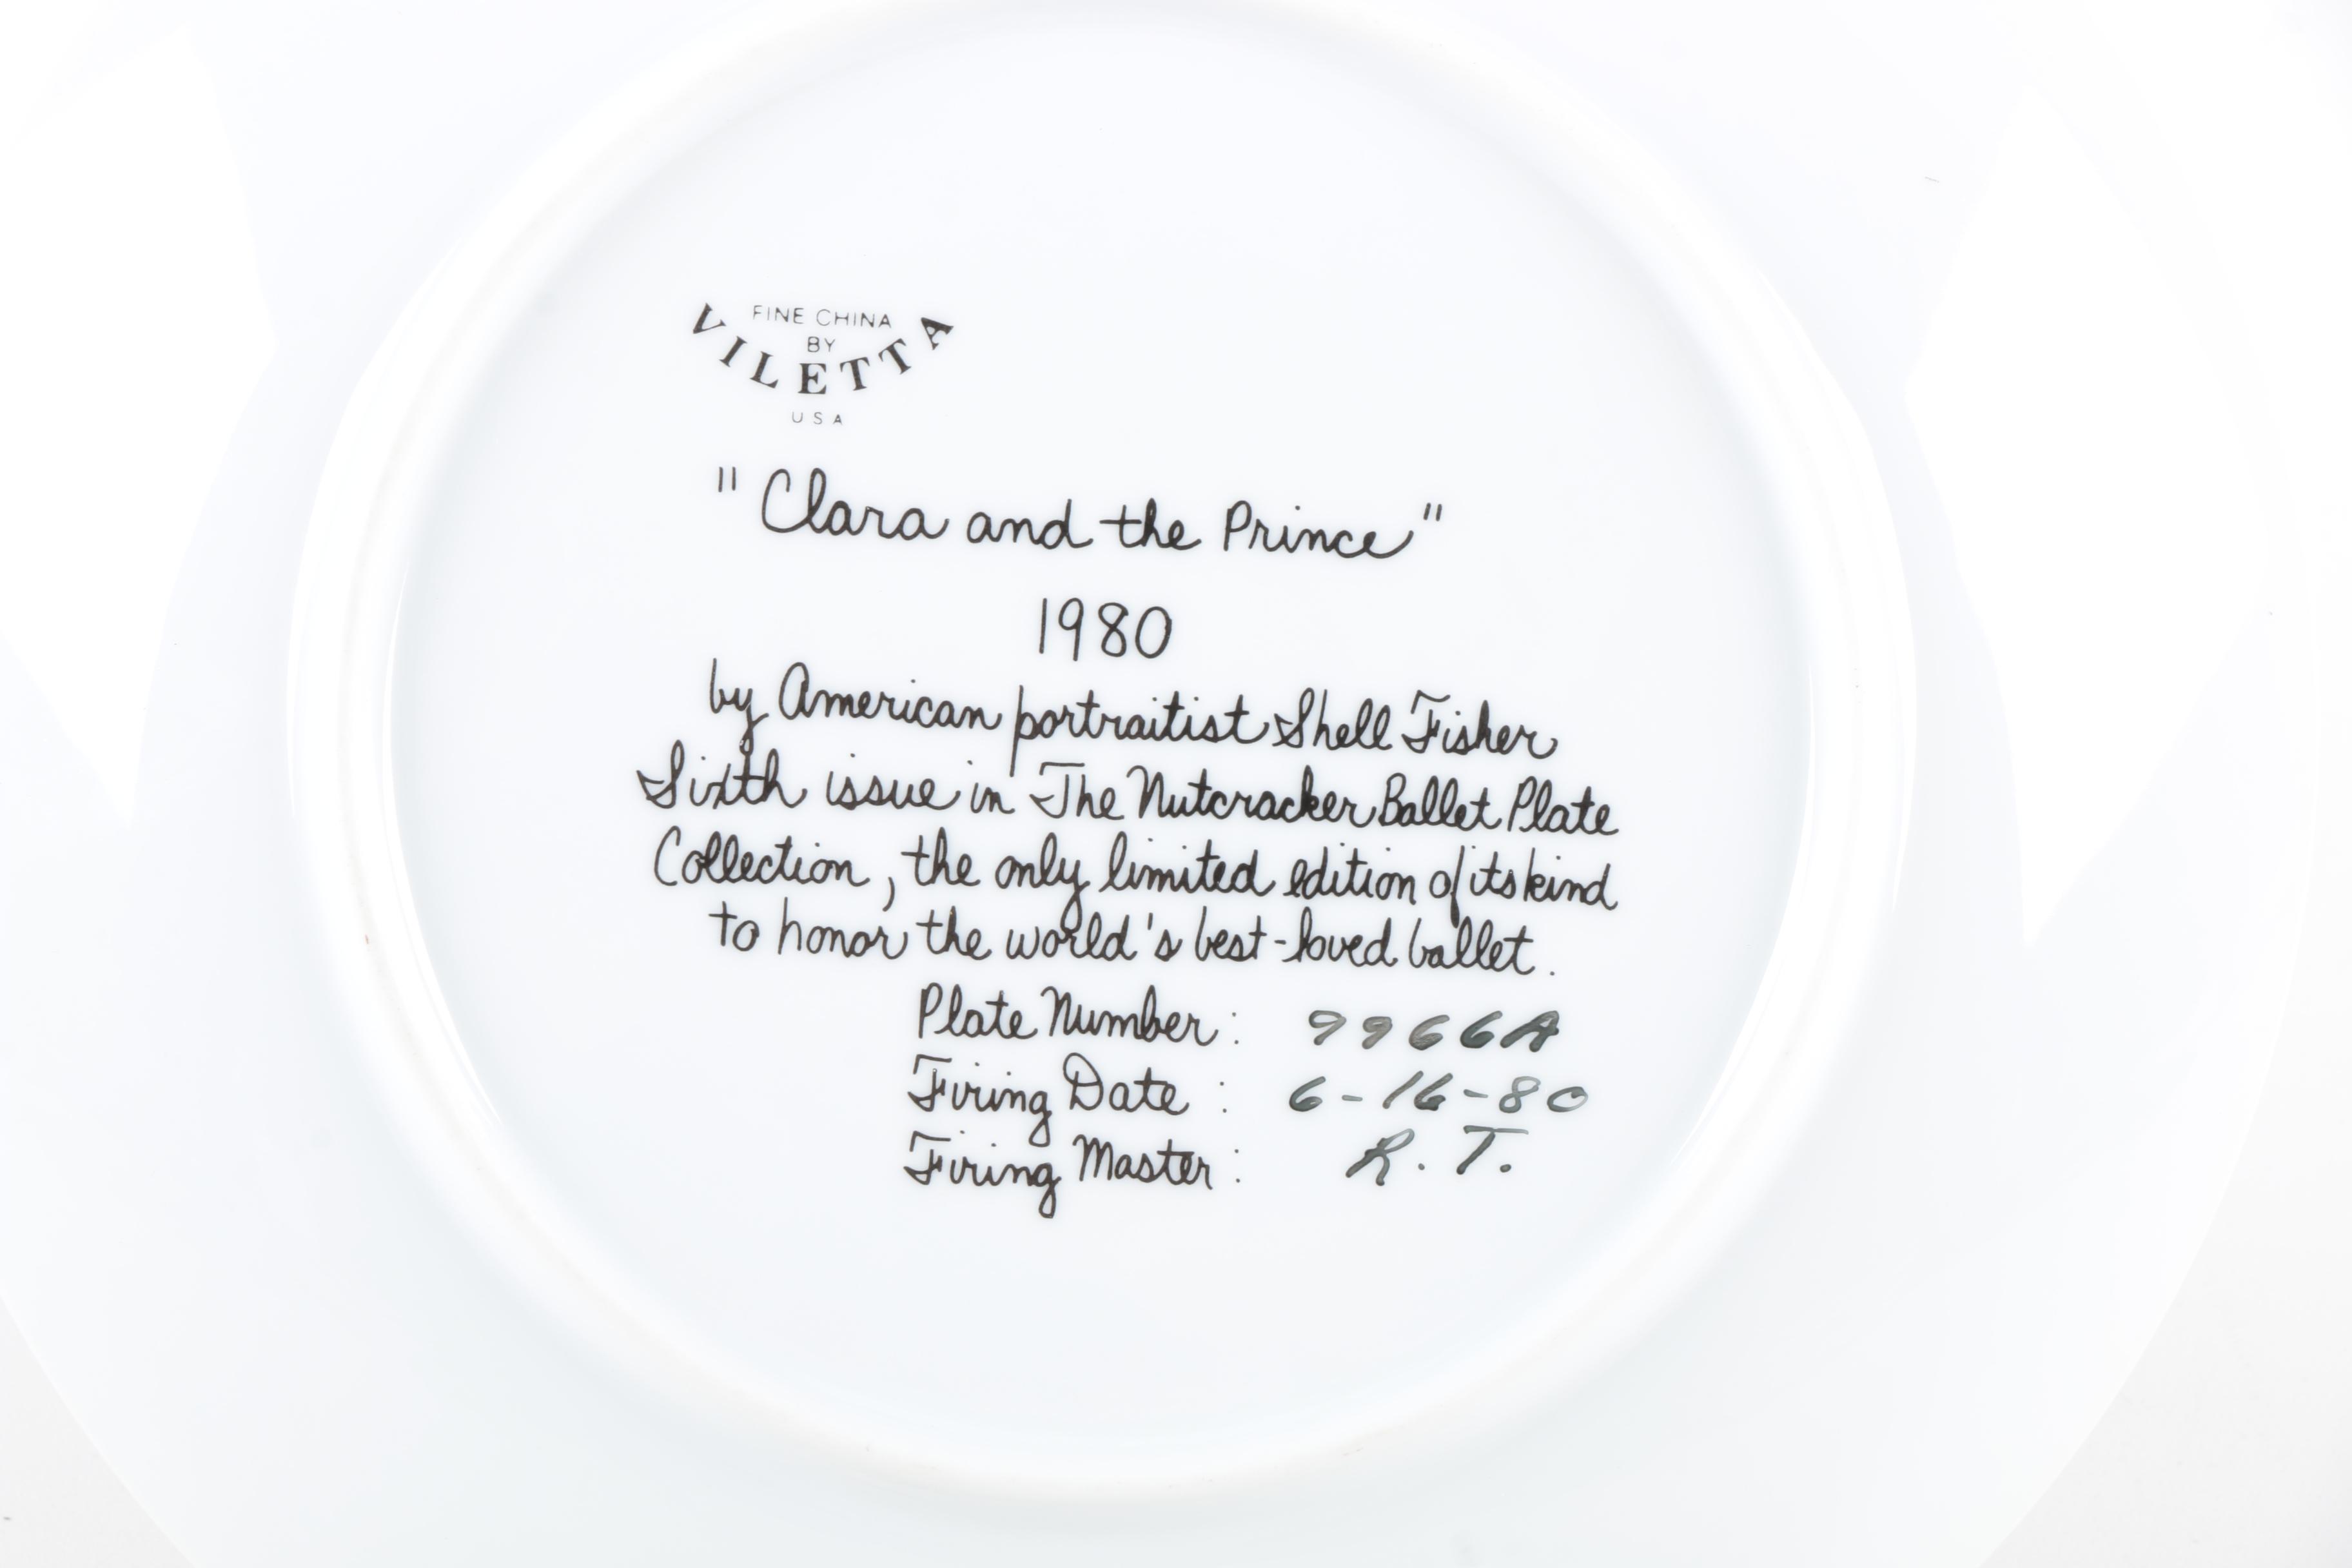 FINE CHINA
BY
VILETTA
USA
"Clara and the Prince"
1980
by American portraitist Shell Fisher
Sixth issue in The Nutcracker Ballet Plate
Collection, the only limited edition of its kind
to honor the world's best-loved ballet.
Plate Number: 9966A
Firing Date: 6-16-80
Firing Master: R. T.